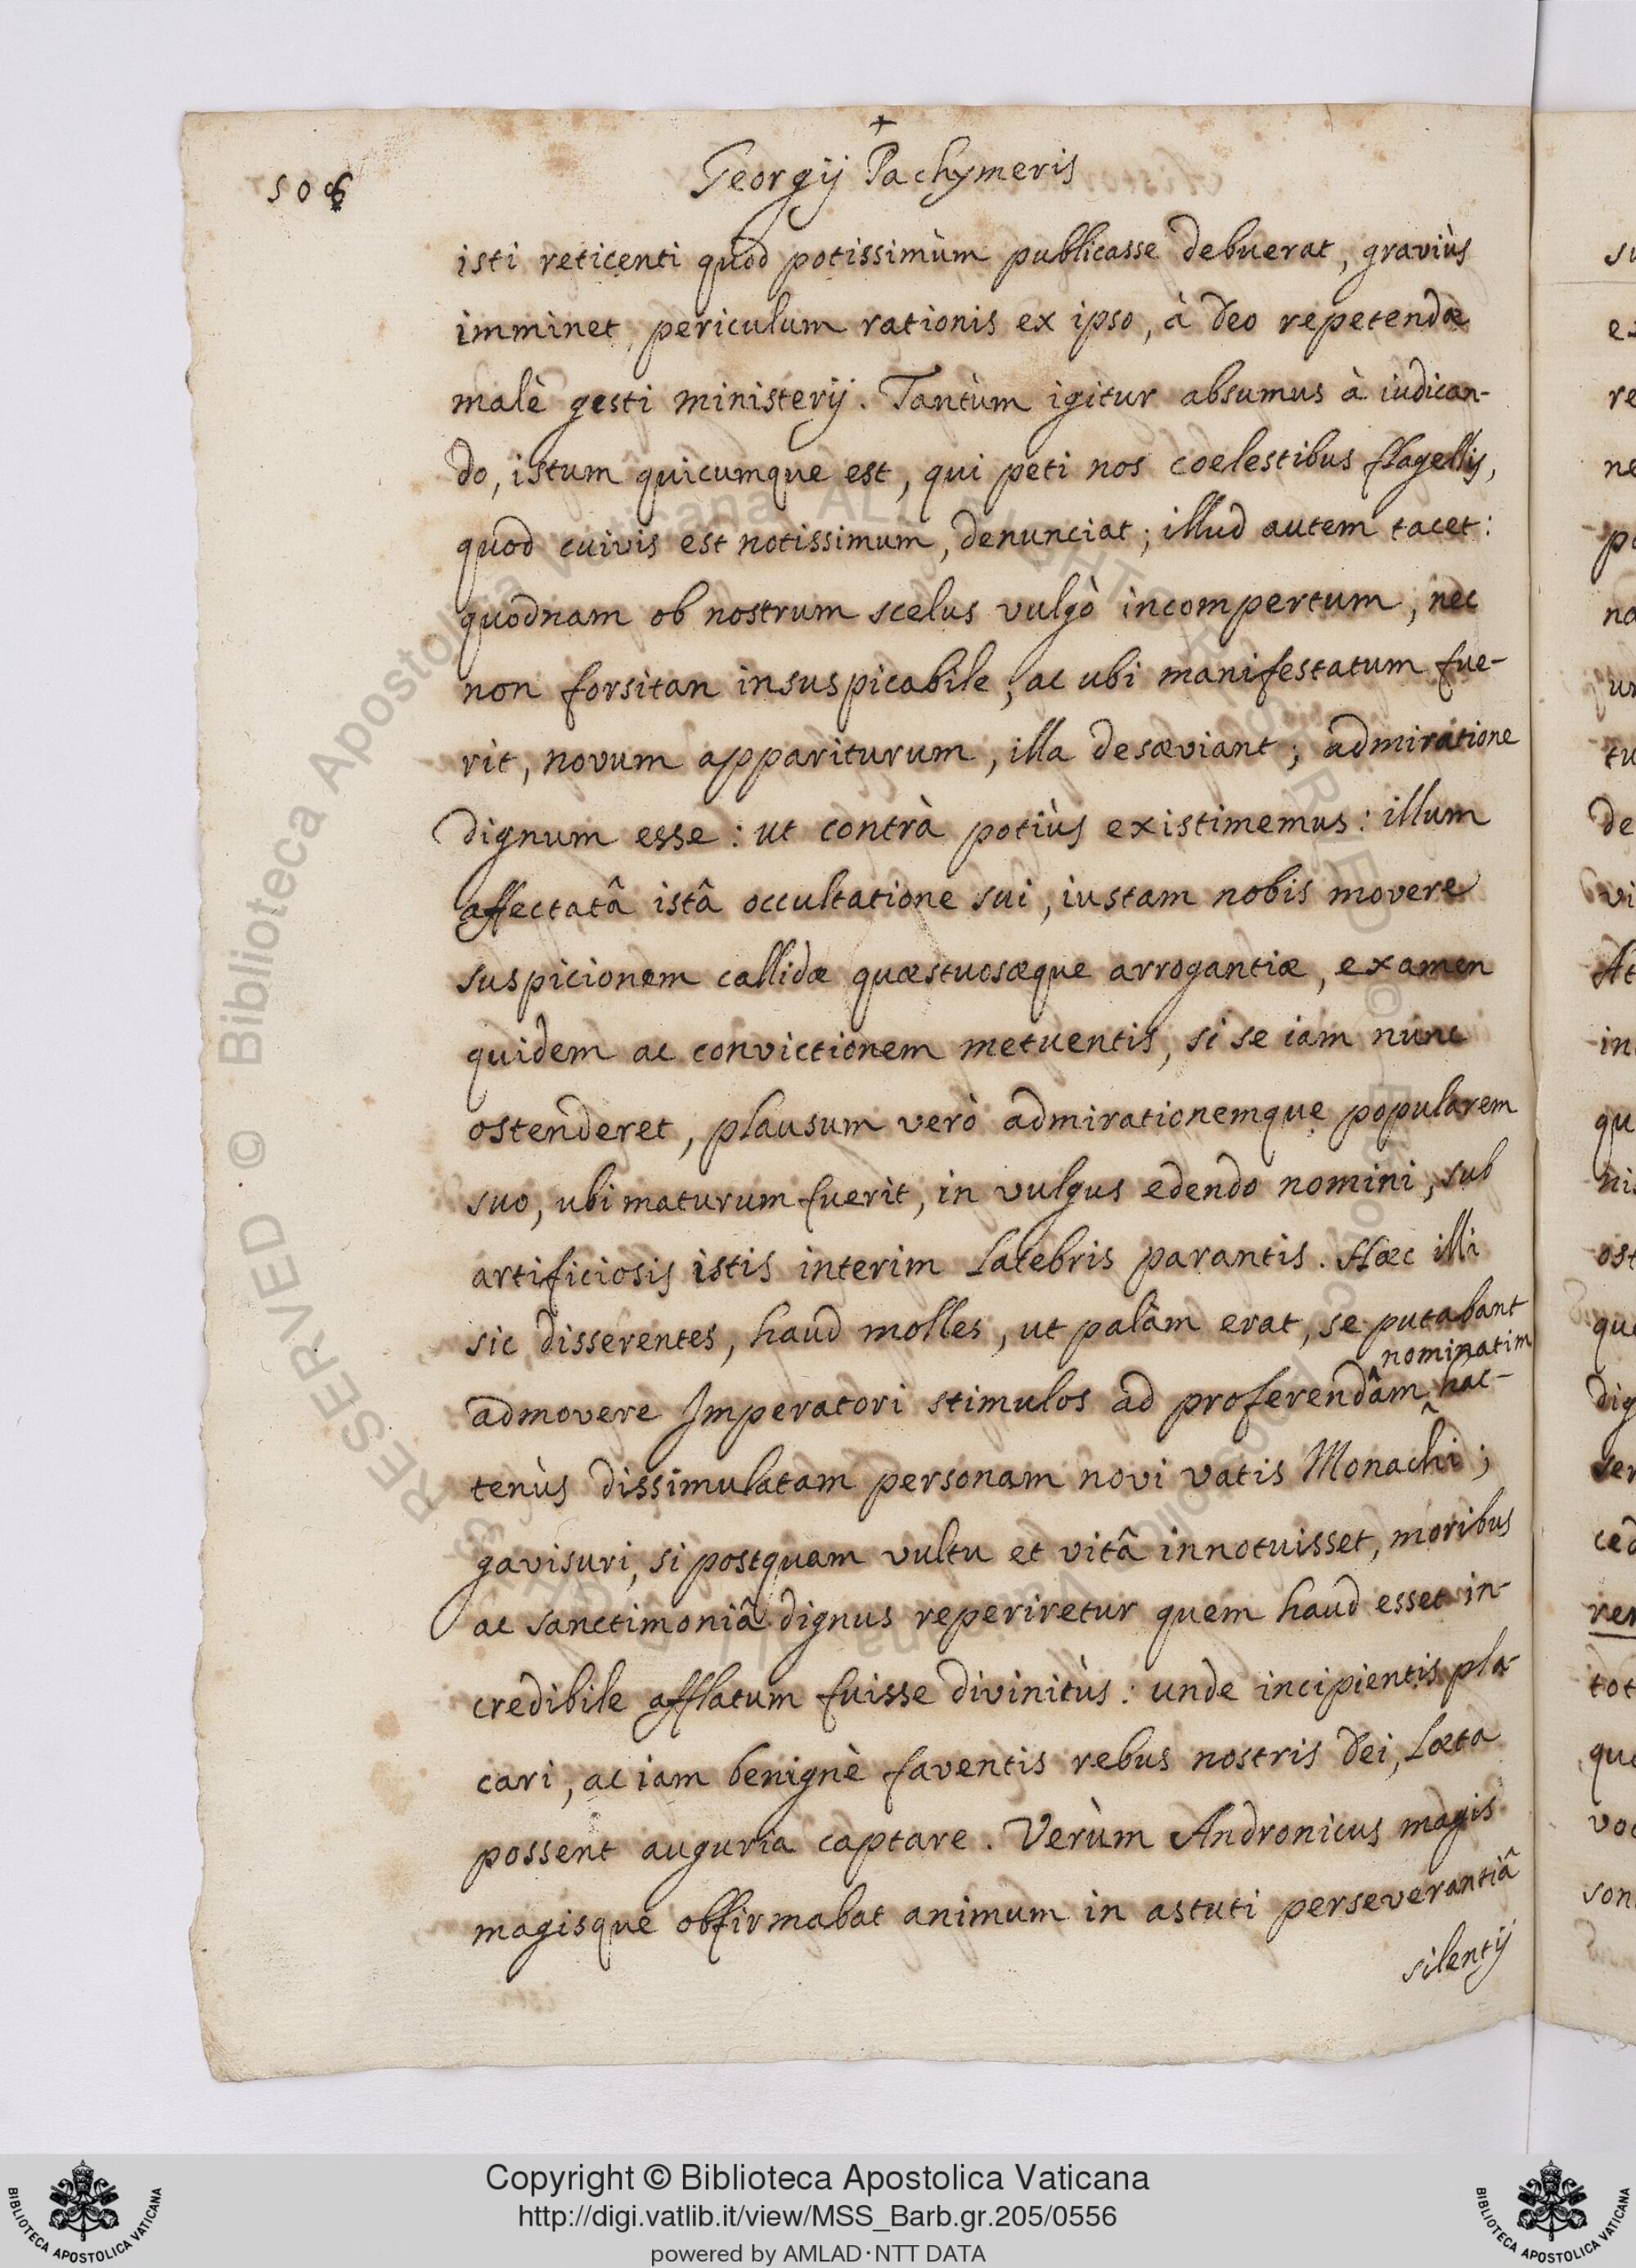 +
506
Georgij Pachymeris
isti reticenti quod potissimùm publicasse debuerat, graviùs
imminet periculum rationis ex ipso, à Deo repetendæ
malè gesti ministerij. Tantùm igitur absumus à iudican-
do, istum quicumque est, qui peti nos coelestibus flagellis,
quod cuivis est notissimum, denunciat; illud autem tacet:
quodnam ob nostrum scelus vulgò incompertum, nec
non forsitan insuspicabile, ac ubi manifestatum fue-
rit, novum appariturum, illa desæviant; admiratione
dignum esse: ut contrà potiùs existimemus: illum
affectatâ istâ occultatione sui, iustam nobis movere
suspicionem callidæ quæstuosæque arrogantiæ, examen
quidem ac convictionem metuentis, si se iam nunc
ostenderet, plausum verò admirationemque popularem
suo, ubi maturum fuerit, in vulgus edendo nomini, sub
artificiosis istis interim latebris parantis. Hæc illi
sic disserentes, haud molles, ut palàm erat, se putabant
nominatim
admovere Imperatori stimulos ad proferendam hac-
tenùs dissimulatam personam novi vatis Monachi;
gavisuri, si postquam vultu et vitâ innotuisset, moribus
ac sanctimoniâ dignus reperiretur quem haud esset in-
credibile afflatum fuisse divinitùs: unde incipientis pla-
cari, ac iam benignè faventis rebus nostris Dei, læta
possent auguria captare. Verùm Andronicus magis
magisque obfirmabat animum in astuti perseverantiâ
silentij
© Biblioteca Apostolica Vaticana ALL RIGHTS RESERVED © Biblioteca Apostolica Vaticana ALL RIGHTS RESERVED
Copyright © Biblioteca Apostolica Vaticana
http://digi.vatlib.it/view/MSS_Barb.gr.205/0556
powered by AMLAD·NTT DATA
BIBLIOTECA APOSTOLICA VATICANA
BIBLIOTECA APOSTOLICA VATICANA